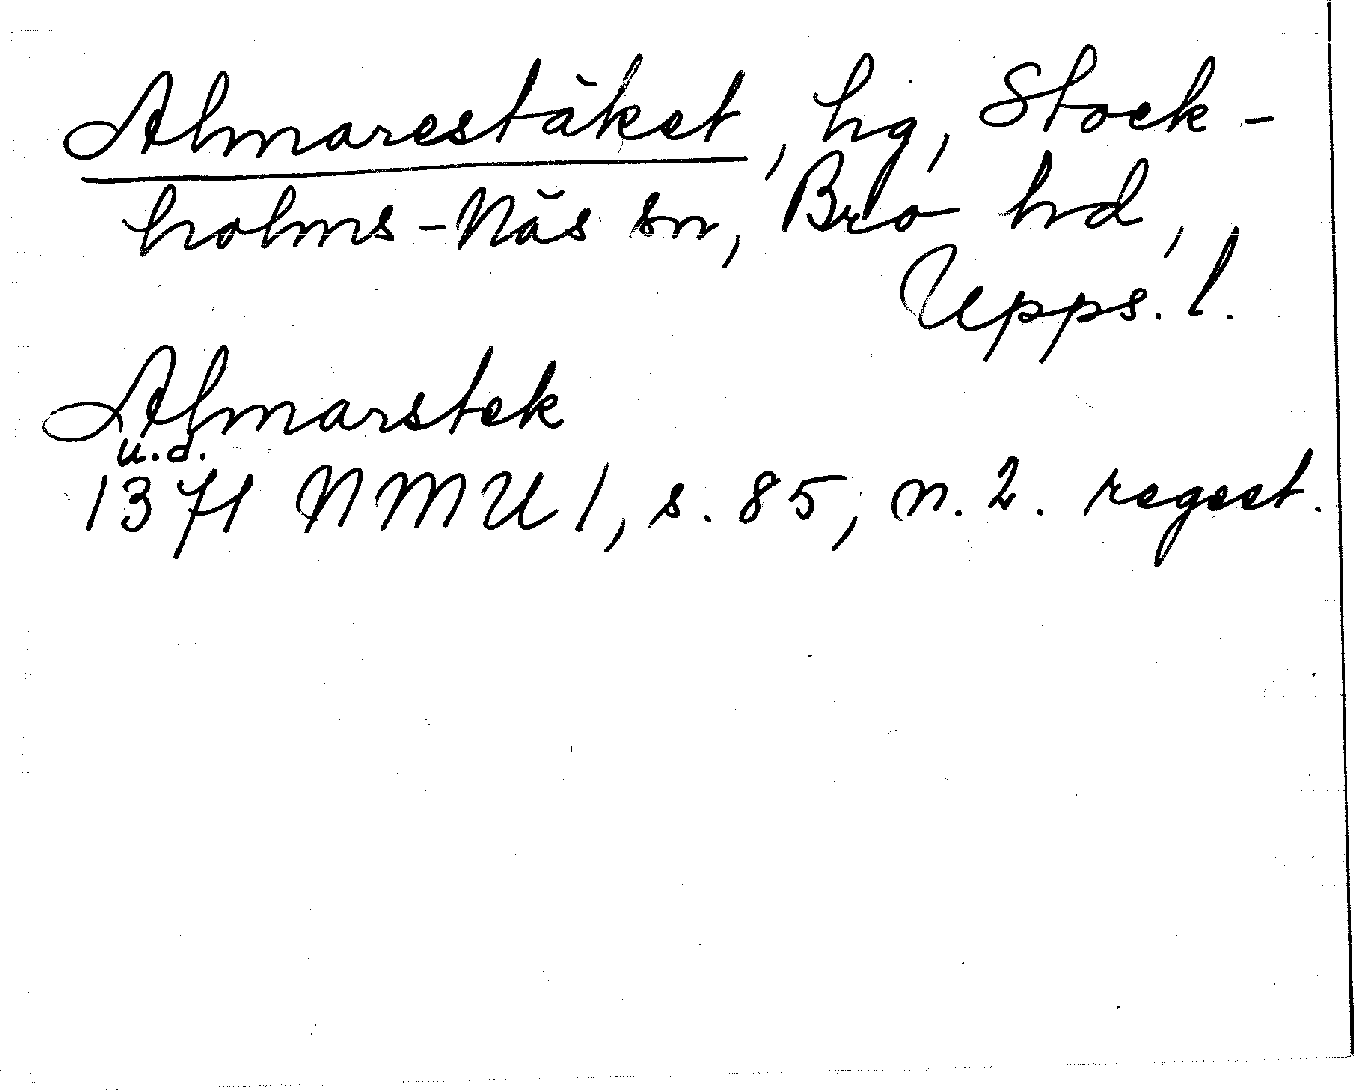 Almarestäket, hg, Stock-
holms-Näs sn, Bro hd,
Upps. l.
Almarstek
u.d.
1371 NMU 1, s. 85, n. 2. regest.